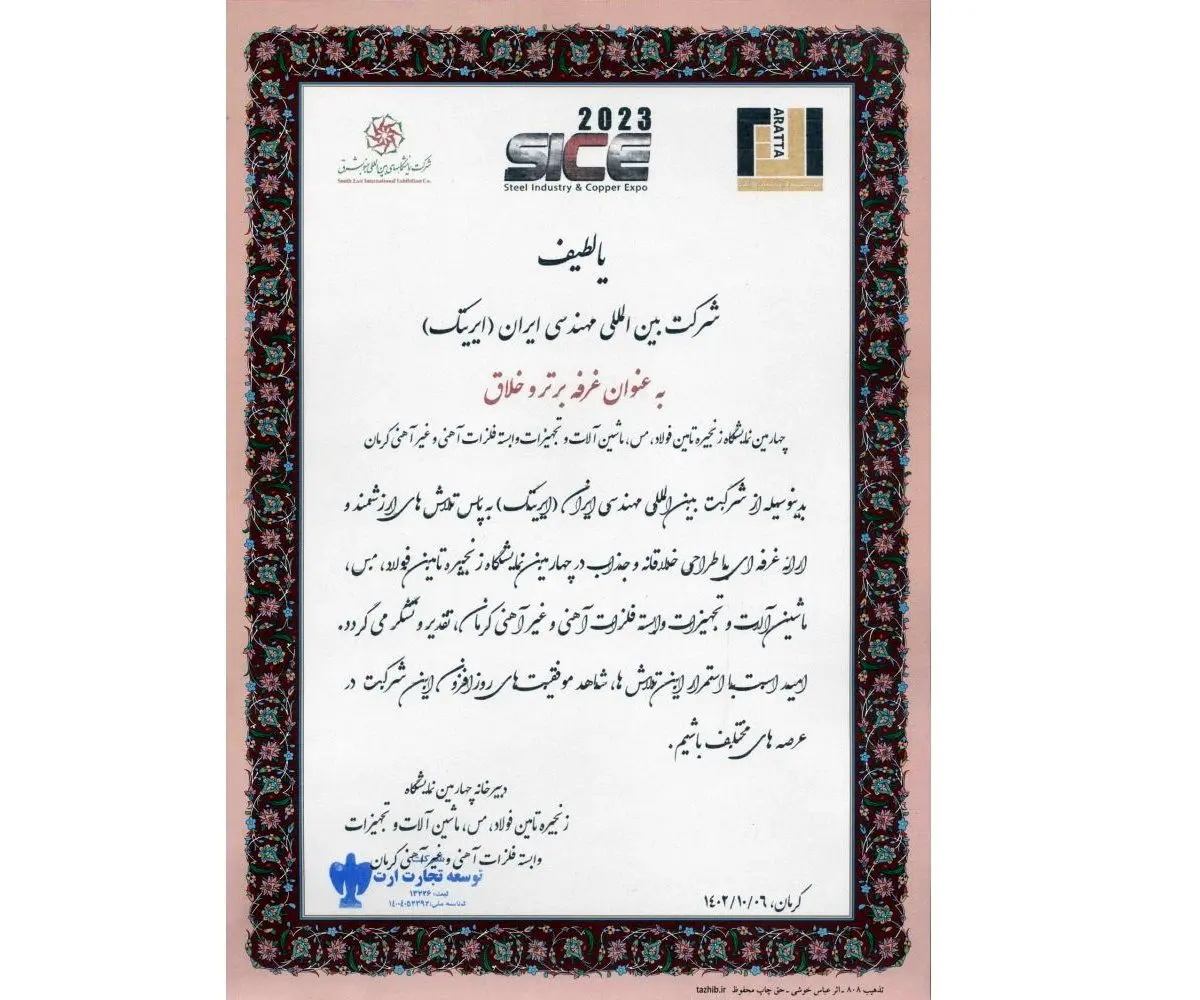 شرکت نمایشگاههای بین المللی جنوبشرق
South East International Exhibition Co.
2023
SICE
Steel Industry & Copper Expo
ARATTA
یا لطیف
شرکت بین المللی مهندسی ایران (ایریتک)
به عنوان غرفه برتر و خلاق
چهارمین نمایشگاه زنجیره تامین فولاد، مس، ماشین آلات و تجهیزات وابسته فلزات آهنی و غیر آهنی کرمان
بدینوسیله از شرکت بین المللی مهندسی ایران (ایریتک) به پاس تلاش های ارزشمند و
ارائه غرفه ای با طراحی خلاقانه و جذاب در چهارمین نمایشگاه زنجیره تامین فولاد، مس،
ماشین آلات و تجهیزات وابسته فلزات آهنی و غیر آهنی کرمان، تقدیر و تشکر می گردد.
امید است با استمرار این تلاش ها، شاهد موفقیت های روزافزون این شرکت در
عرصه های مختلف باشیم.
دبیرخانه چهارمین نمایشگاه
زنجیره تامین فولاد، مس، ماشین آلات و تجهیزات
وابسته فلزات آهنی و غیر آهنی کرمان
شرکت
توسعه تجارت ارت
ثبت: ۱۳۲۲۶
شناسه ملی: ۱۴۰۰۴۰۵۲۳۹۲
کرمان، ۱۴۰۲/۱۰/۰۶
تذهیب ۸۰۸ - اثر عباس خوشی - حق چاپ محفوظ tazhib.ir